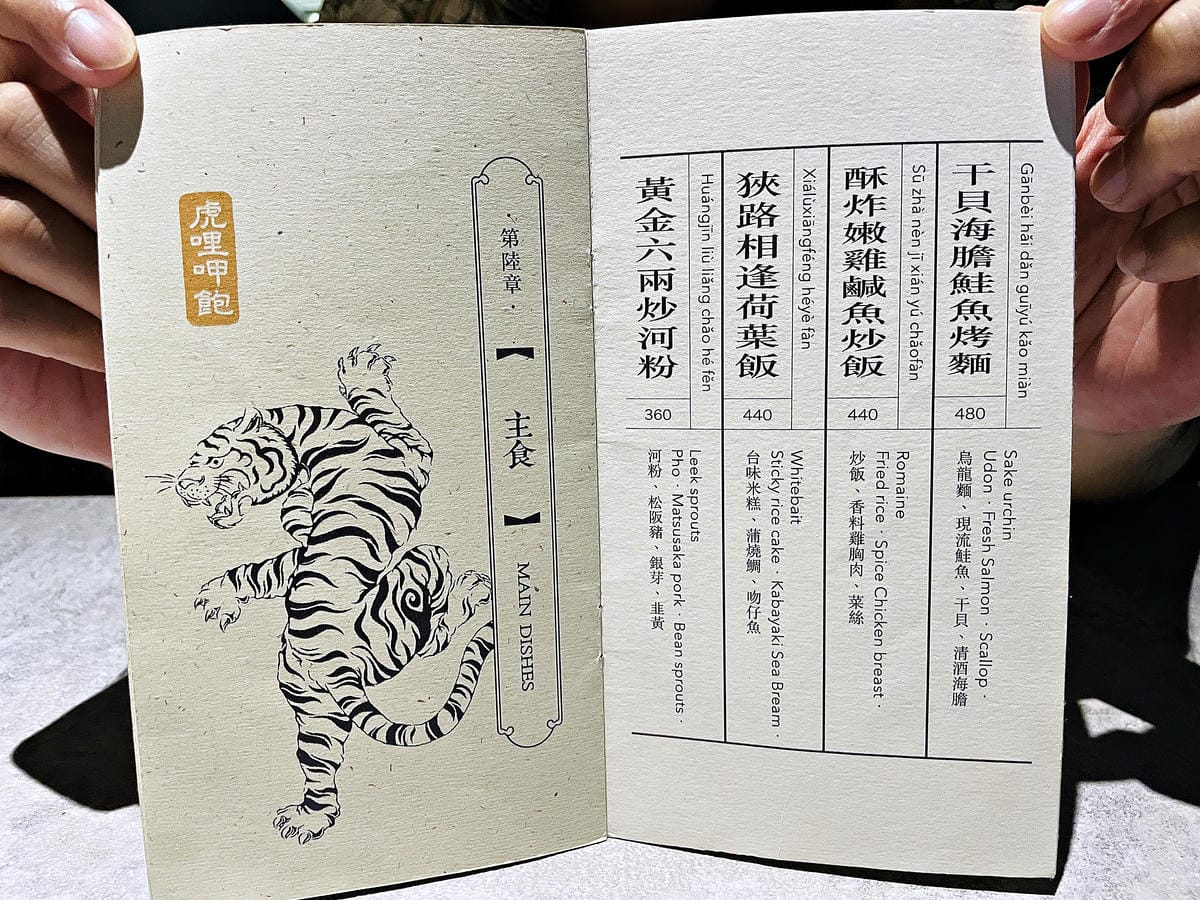 干貝海膽鮭魚烤麵
Gānbèi hǎi dǎn guīyú kǎo miàn
480
Sake urchin
Udon · Fresh Salmon · Scallop ·
烏龍麵、現流鮭魚、干貝、清酒海膽
酥炸嫩雞鹹魚炒飯
Sū zhà nèn jī xián yú chǎofàn
440
Romaine
Fried rice · Spice Chicken breast ·
炒飯、香料雞胸肉、菜絲
狹路相逢荷葉飯
Xiálùxiāngféng héyè fàn
440
Whitebait
Sticky rice cake · Kabayaki Sea Bream ·
台味米糕、蒲燒鯛、吻仔魚
黃金六兩炒河粉
Huángjīn liù liǎng chǎo hé fěn
360
Leek sprouts
Pho · Matsusaka pork · Bean sprouts ·
河粉、松阪豬、銀芽、韭黃
·第陸章·
【主食】 MAIN DISHES
虎哩呷飽